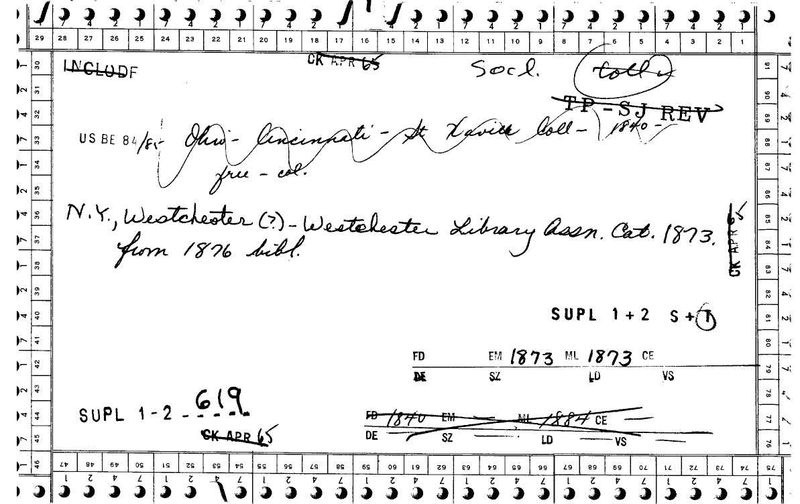 29 28 27 26 25 24 23 22 21 20 19 18 17 16 15 14 13 12 11 10 9 8 7 6 5 4 3 2 1
INCLUDE
CK APR 65
Socl.
TP-SJ REV
US BE 84/85- Ohio - Cincinnati - St Xavier Coll - 1840-
free - col.
N.Y., Westchester (?) - Westchester Library Assn. Cat. 1873.
from 1876 bibl.
CK APR 65
SUPL 1+2 S+T
FD EM 1873 ML 1873 CE
DE SZ LD VS
SUPL 1-2-619
CK APR 65
FD 1840 EM — ML 1884 CE —
DE SZ — LD — VS —
47 48 49 50 51 52 53 54 55 56 57 58 59 60 61 62 63 64 65 66 67 68 69 70 71 72 73 74 75